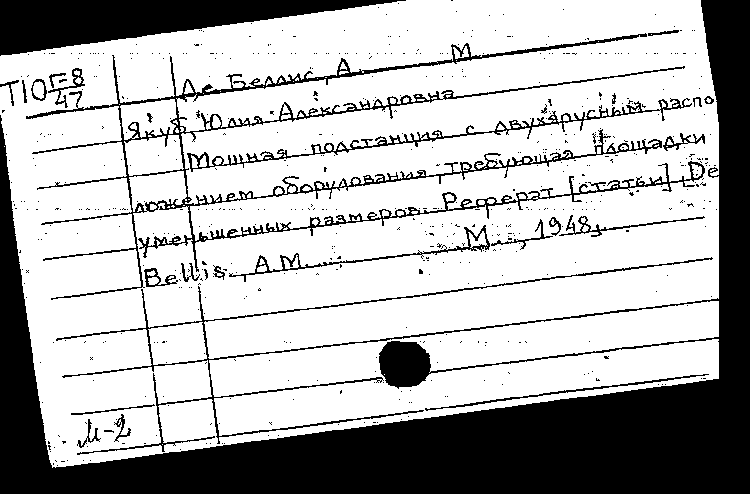 Де Беллис, А. М.
П10 Г-8
47
Якуб, Юлия Александровна
Мощная подстанция с двухярусным распо
ложением оборудования, требующая площадки
уменьшенных размеров. Реферат [статьи] De
Bellis, A.M. М., 1948,
М-2